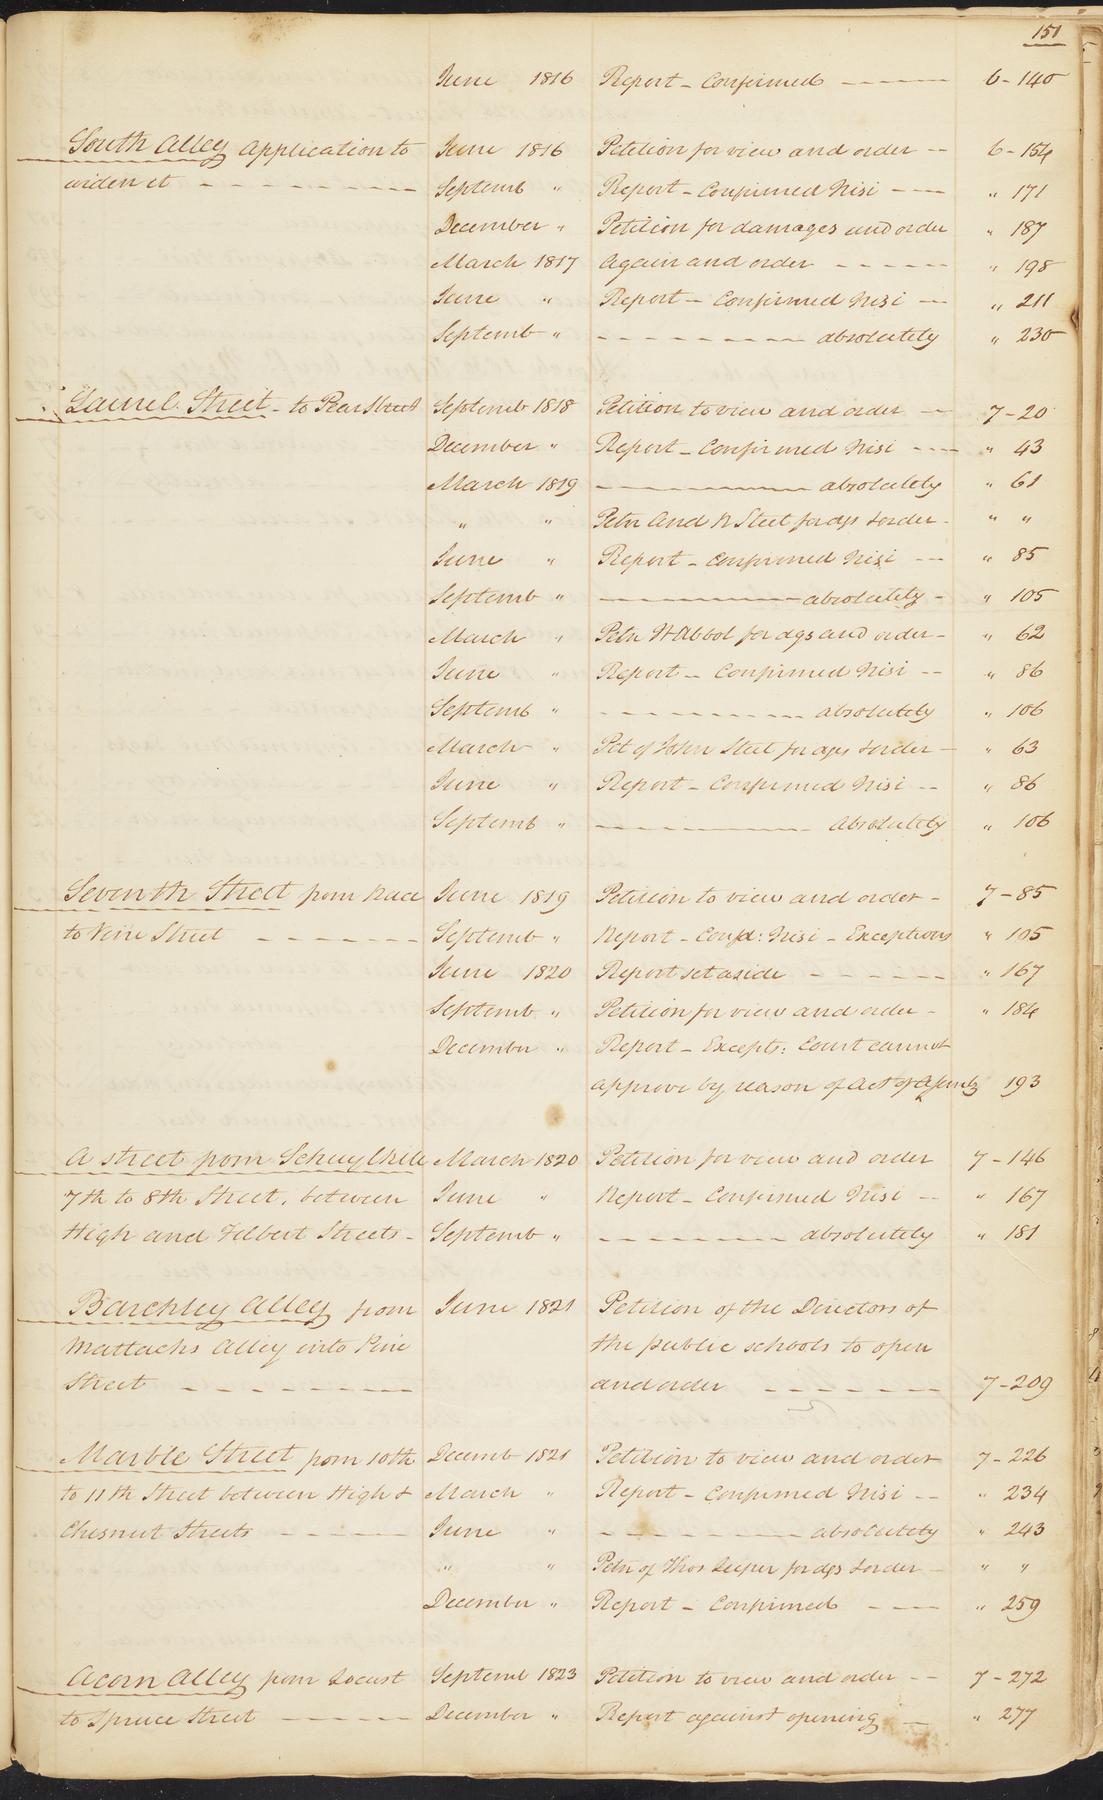 151
June 1816 Report - Confirmed ---- 6-140
South Alley Application to June 1816 Petition for view and order -- 6-154
widen it --------- Septemb " Report - Confirmed Nisi ---- " 171
December " Petition for damages and order " 187
March 1817 Again and order ------ " 198
June " Report - Confirmed Nisi --- " 211
Septemb " --------- absolutely " 230
Laurel Street - to Pear Street Septemb 1818 Petition to view and order -- 7-20
December " Report - Confirmed Nisi ---- " 43
March 1819 --------- absolutely " 61
" " Petn And N Steel for dgs & order - " "
June " Report - Confirmed Nisi --- " 85
Septemb " --------- absolutely - " 105
March " Petn W Abbot for dgs and order - " 62
June " Report - Confirmed Nisi -- " 86
Septemb " --------- absolutely " 106
March " Pet of John Steel for dgs & order - " 63
June " Report - Confirmed Nisi -- " 86
Septemb " --------- Absolutely " 106
Seventh Street from Race June 1819 Petition to view and order - 7-85
to Vine Street ------ Septemb " Report - Confd: Nisi - Exceptions " 105
June 1820 Report set aside ------ " 167
Septemb " Petition for view and order - " 184
December " Report - Excepts: Court cannot
approve by reason of Act of Assembly 193
A street from Schuylkill March 1820 Petition for view and order 7-146
7th to 8th Street, between June " Report - Confirmed Nisi -- " 167
High and Filbert Streets - Septemb " --------- absolutely " 181
Barckley Alley from June 1821 Petition of the Directors of
Mattacks Alley into Pine the public schools to open
Street --------- and order ------- 7-209
Marble Street from 10th Decemb 1821 Petition to view and order 7-226
to 11th Street between High & March " Report - Confirmed Nisi -- " 234
Chesnut Streets ----- June " --------- absolutely " 243
" " Petn of Thos Leiper for dgs & order - " "
December " Report - Confirmed --- " 259
Acorn Alley from Locust Septemb 1823 Petition to view and order -- 7-272
to Spruce Street ----- December " Report against opening - " 277